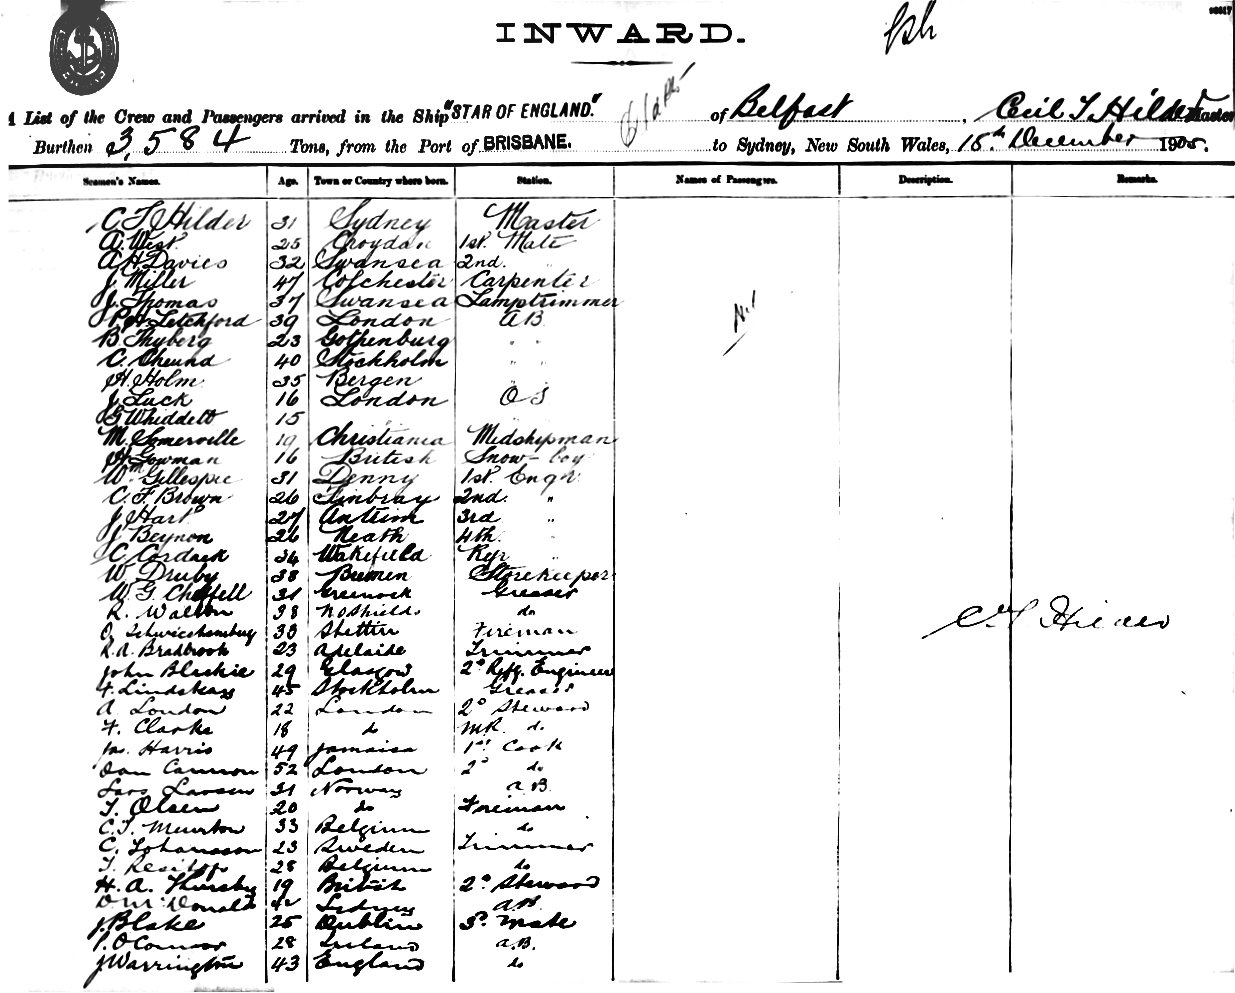 INWARD.
A List of the Crew and Passengers arrived in the Ship "STAR OF ENGLAND." of Belfast, Cecil T. Hilder Master
Burthen 3,584 Tons, from the Port of BRISBANE. to Sydney, New South Wales, 15th December 1905.
Seamen's Names. Age. Town or Country where born. Station. Names of Passengers. Description. Remarks.
C T Hilder 31 Sydney Master
A. West 25 Croydon 1st. Mate
A H Davies 32 Swansea 2nd. "
J. Miller 47 Colchester Carpenter
J. Thomas 37 Swansea Lamptrimmer
P H Letchford 39 London A B
B Thyberg 23 Gothenburg " "
C. 40 Stockholm " "
H. Holm 35 Bergen "
J Luck 16 London O S
G Whiddett 15
M. Somerville 19 Christiania Midshipman
H Gowman 16 British boy
Wm Gillespie 31 Denny 1st. Engr
C. F. Brown 26 2nd. "
J Hart 27 Antrim 3rd "
J Beynon 26 Neath 4th. "
C 34 Wakefield "
W 38 Bremen Storekeeper
W. G. 31 Greenock Greaser
R. Walton 38 N Shields do
O 33 Stettin Fireman
R. A. Bradbrook 23 Adelaide Trimmer
John Blackie 29 Glasgow 2º Refg. Engineer
F. 45 Stockholm Greaser
A London 22 London 2º Steward
F. Clarke 18 do do
Jas. Harris 49 Jamaica 1st Cook
Dan Cannon 52 London 2º do
Lars Larsen 31 Norway a B.
T. Olsen 20 do Fireman
C. T. 33 Belgium do
C. Johansson 23 Sweden Trimmer
T. 28 Belgium do
H. A. Thursby 19 British 2º Steward
D McDonald Sydney AB.
J Blake 25 Dublin 3º. Mate
P. O'Connor 28 Ireland a.B.
J Warrington 43 England do
Nil